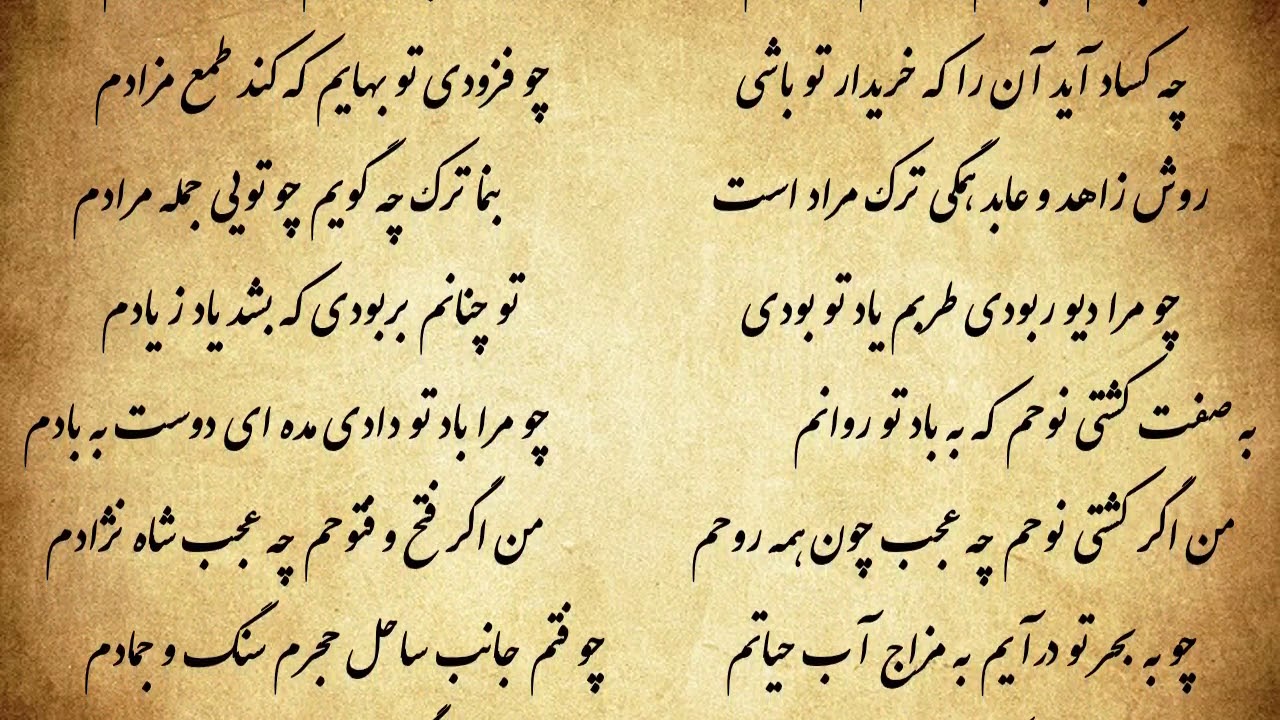 چه کساد آید آن را که خریدار تو باشی چو فزودی تو بهایم که کند طمع مزادم
روش زاهد و عابد همگی ترک مراد است بنما ترک چه گویم چو تویی جمله مرادم
چو مرا دیو ربودی طربم یاد تو بودی تو چنانم بربودی که بشد یاد ز یادم
به صفت کشتی نوحم که به باد تو روانم چو مرا باد تو دادی مده ای دوست به بادم
من اگر کشتی نوحم چه عجب چون همه روحم من اگر فتح و فتوحم چه عجب شاه نژادم
چو به بحر تو درآیم به مزاج آب حیاتم چو فتم جانب ساحل حجرم سنگ و جمادم